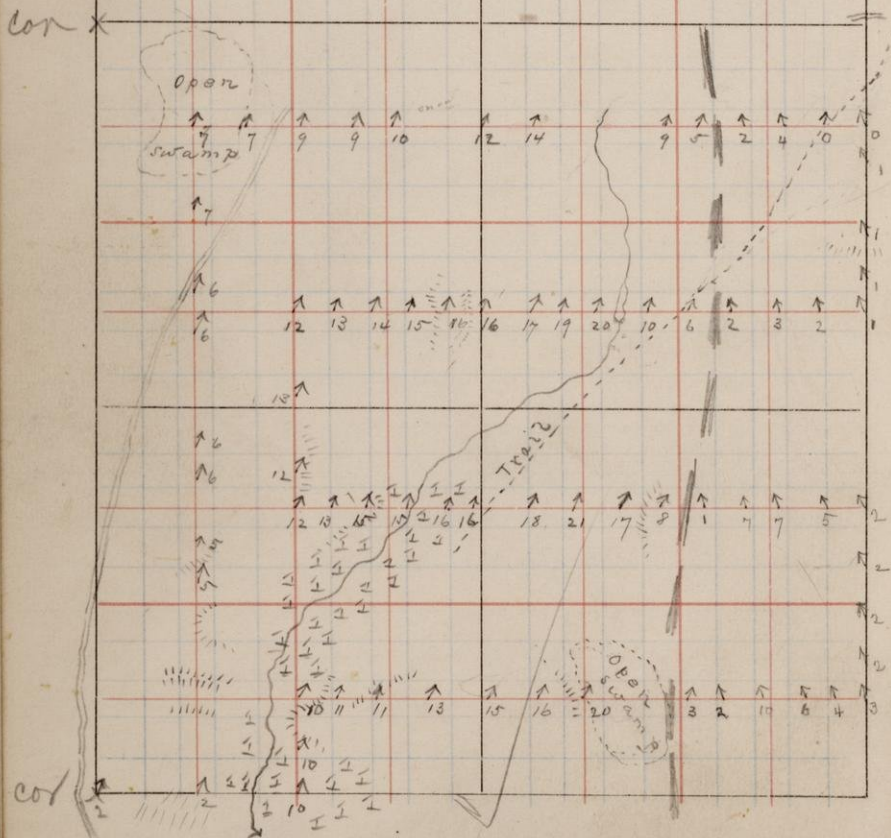 cor x
Open
swamp
7 7 9 9 10 12 14 9 5 2 4 10 0
1
7
1
6
1
12 13 14 15 16 16 17 19 20 10 6 2 3 2 1
6
13
6
6 12
12 13 15 17 16 16 18 21 17 8 1 7 7 5 2
Trail
5
2
5
2
2
Open
swamp
10 11 11 13 15 16 20 3 2 10 6 4 3
10
cor 2 2 10